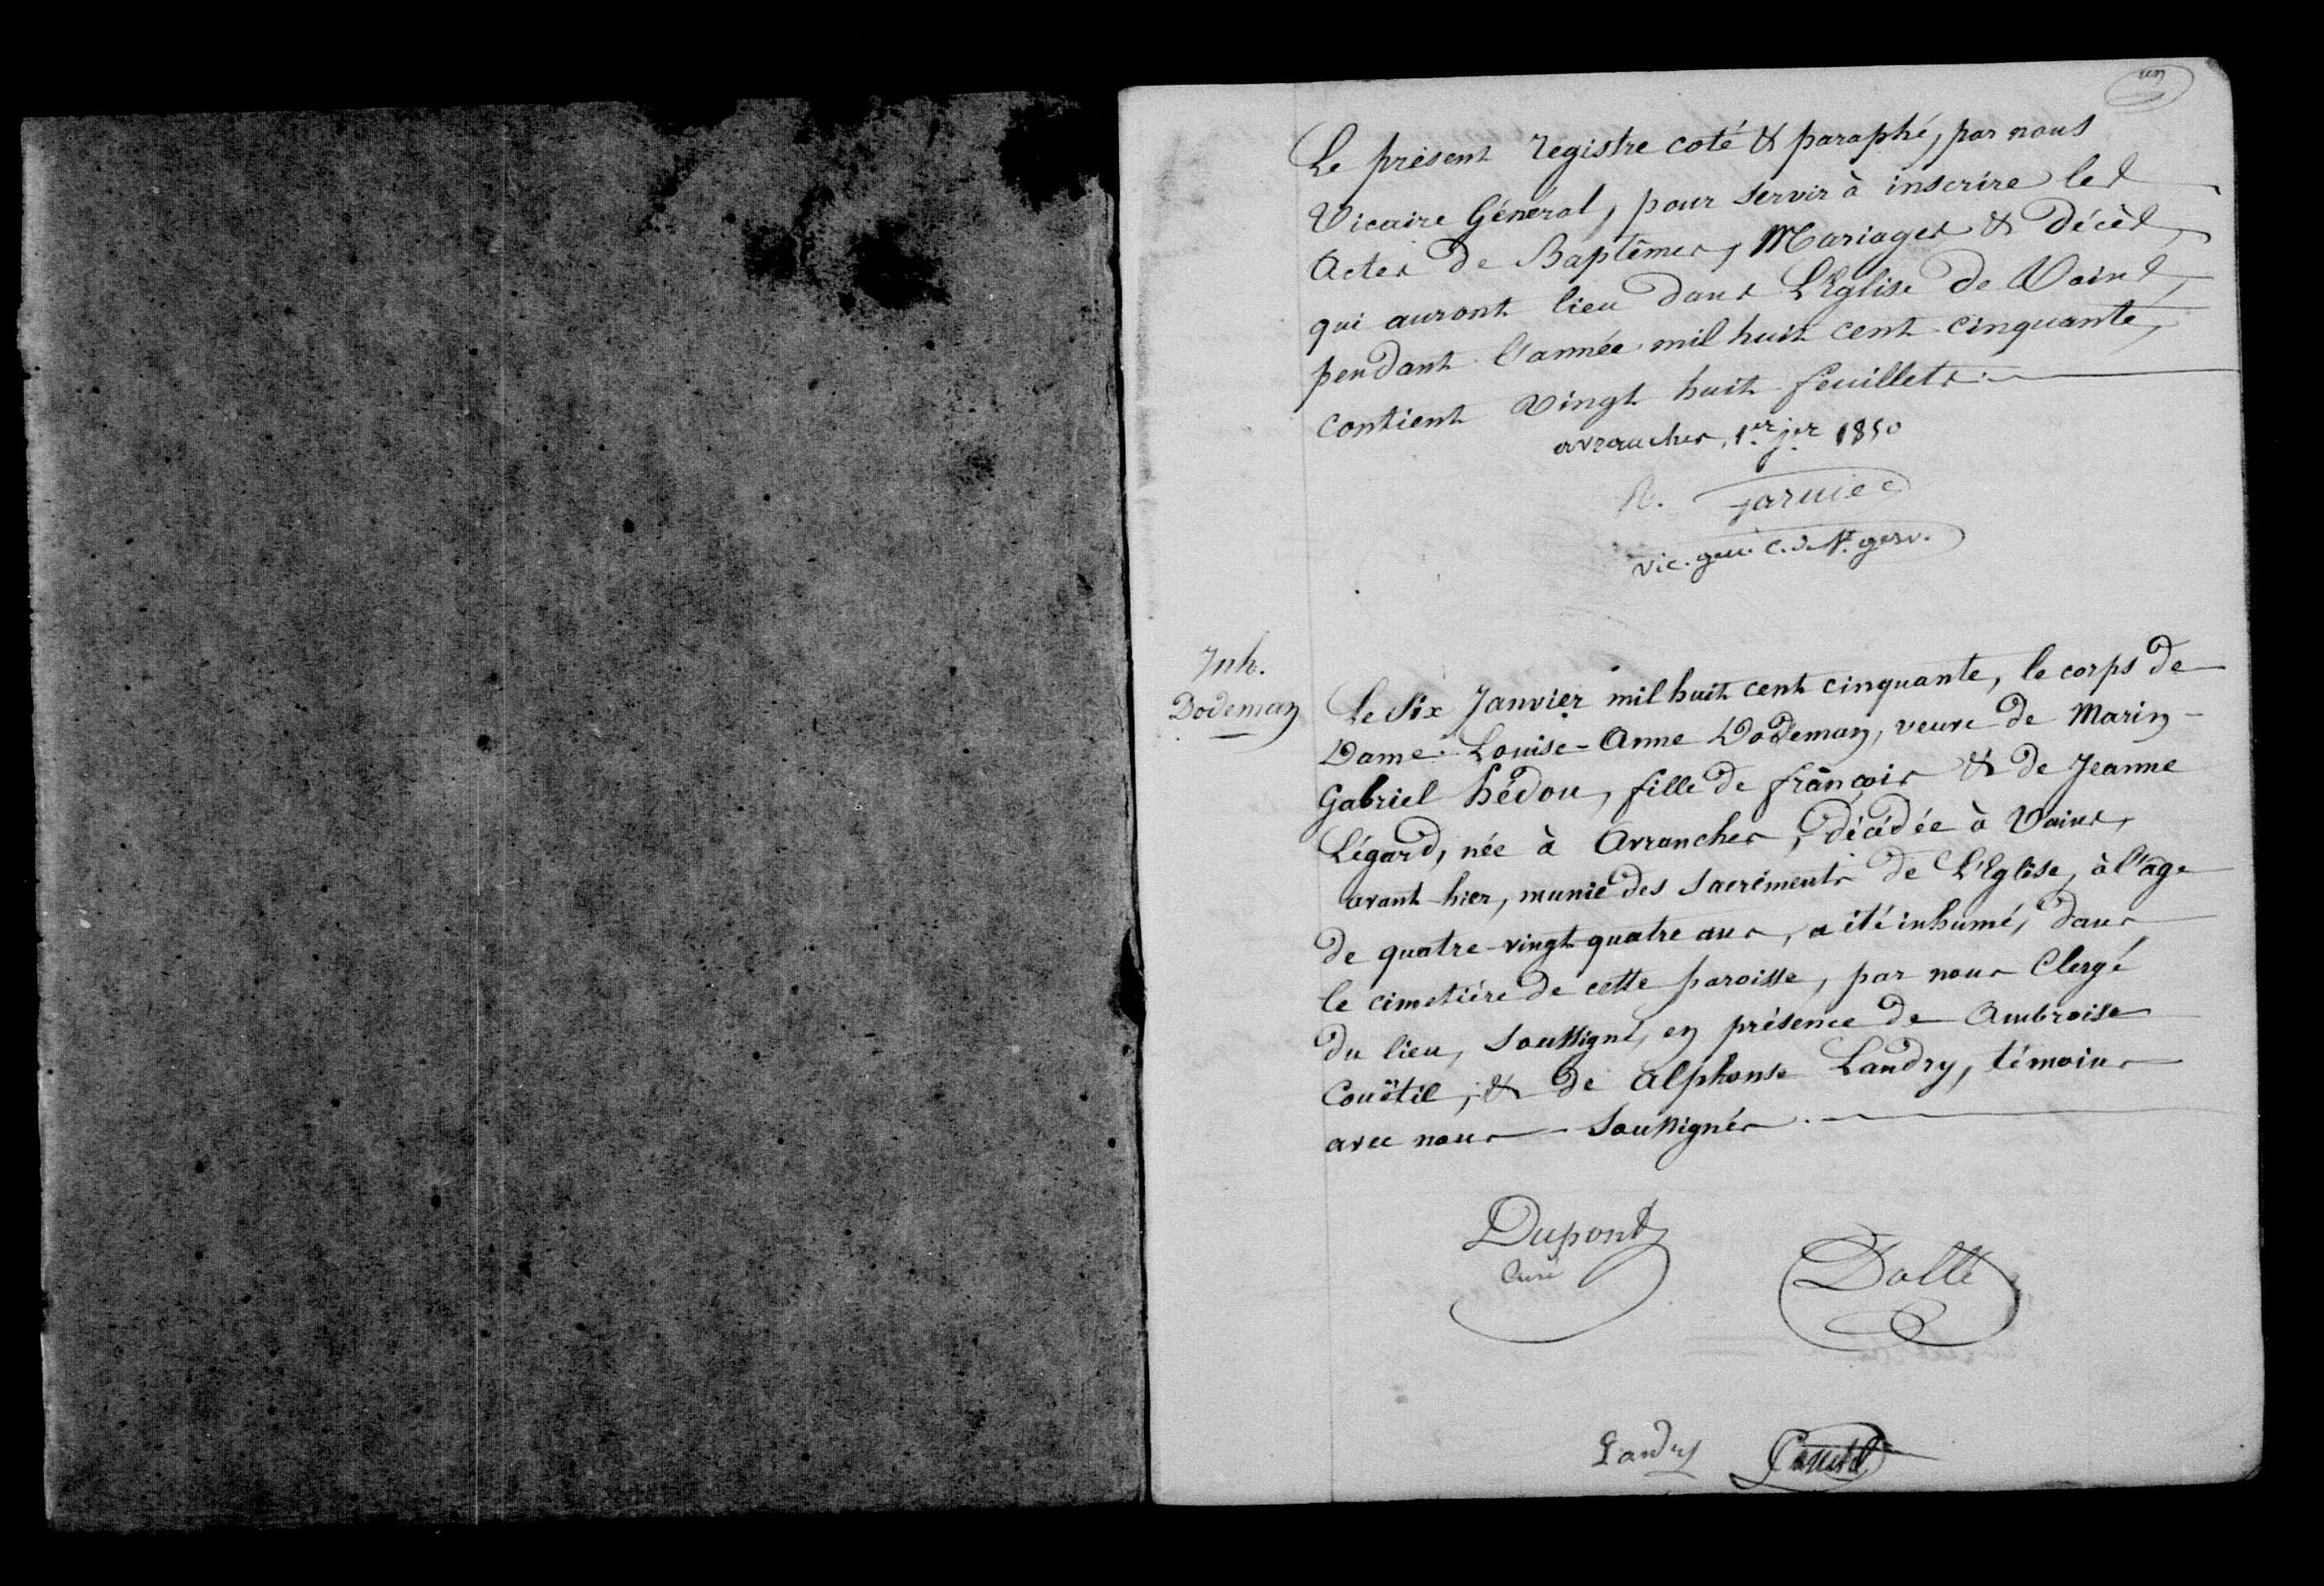 un
Le présent registre coté & paraphé, par nous
Vicaire Général, pour servir à inscrire les
Actes de Baptêmes, Mariages & décès,
qui auront lieu dans L'Eglise de Vains,
pendant l'année mil huit cent cinquante,
contient vingt huit feuillets.
avranches, 1er jer 1850
vic. gen. c. de St. gerv.
Inh.
Dodeman
Le Six Janvier mil huit cent cinquante, le corps de
Dame Louise-Anne Dodeman, veuve de Marin-
Gabriel hédou, fille de françois & de Jeanne
Légard, née à Avranches, décédée à Vains,
avant-hier, munie des Sacréments de L'Eglise, à l'âge
de quatre-vingt-quatre ans, a été inhumé, dans
le cimetière de cette paroisse, par nous Clergé
du lieu, Soussigné, en présence de Ambroise
Couëtil, & de Alphonse Landry, témoins
avec nous Soussignés.
Dupont
Curé
Dallé
Landry Couetil